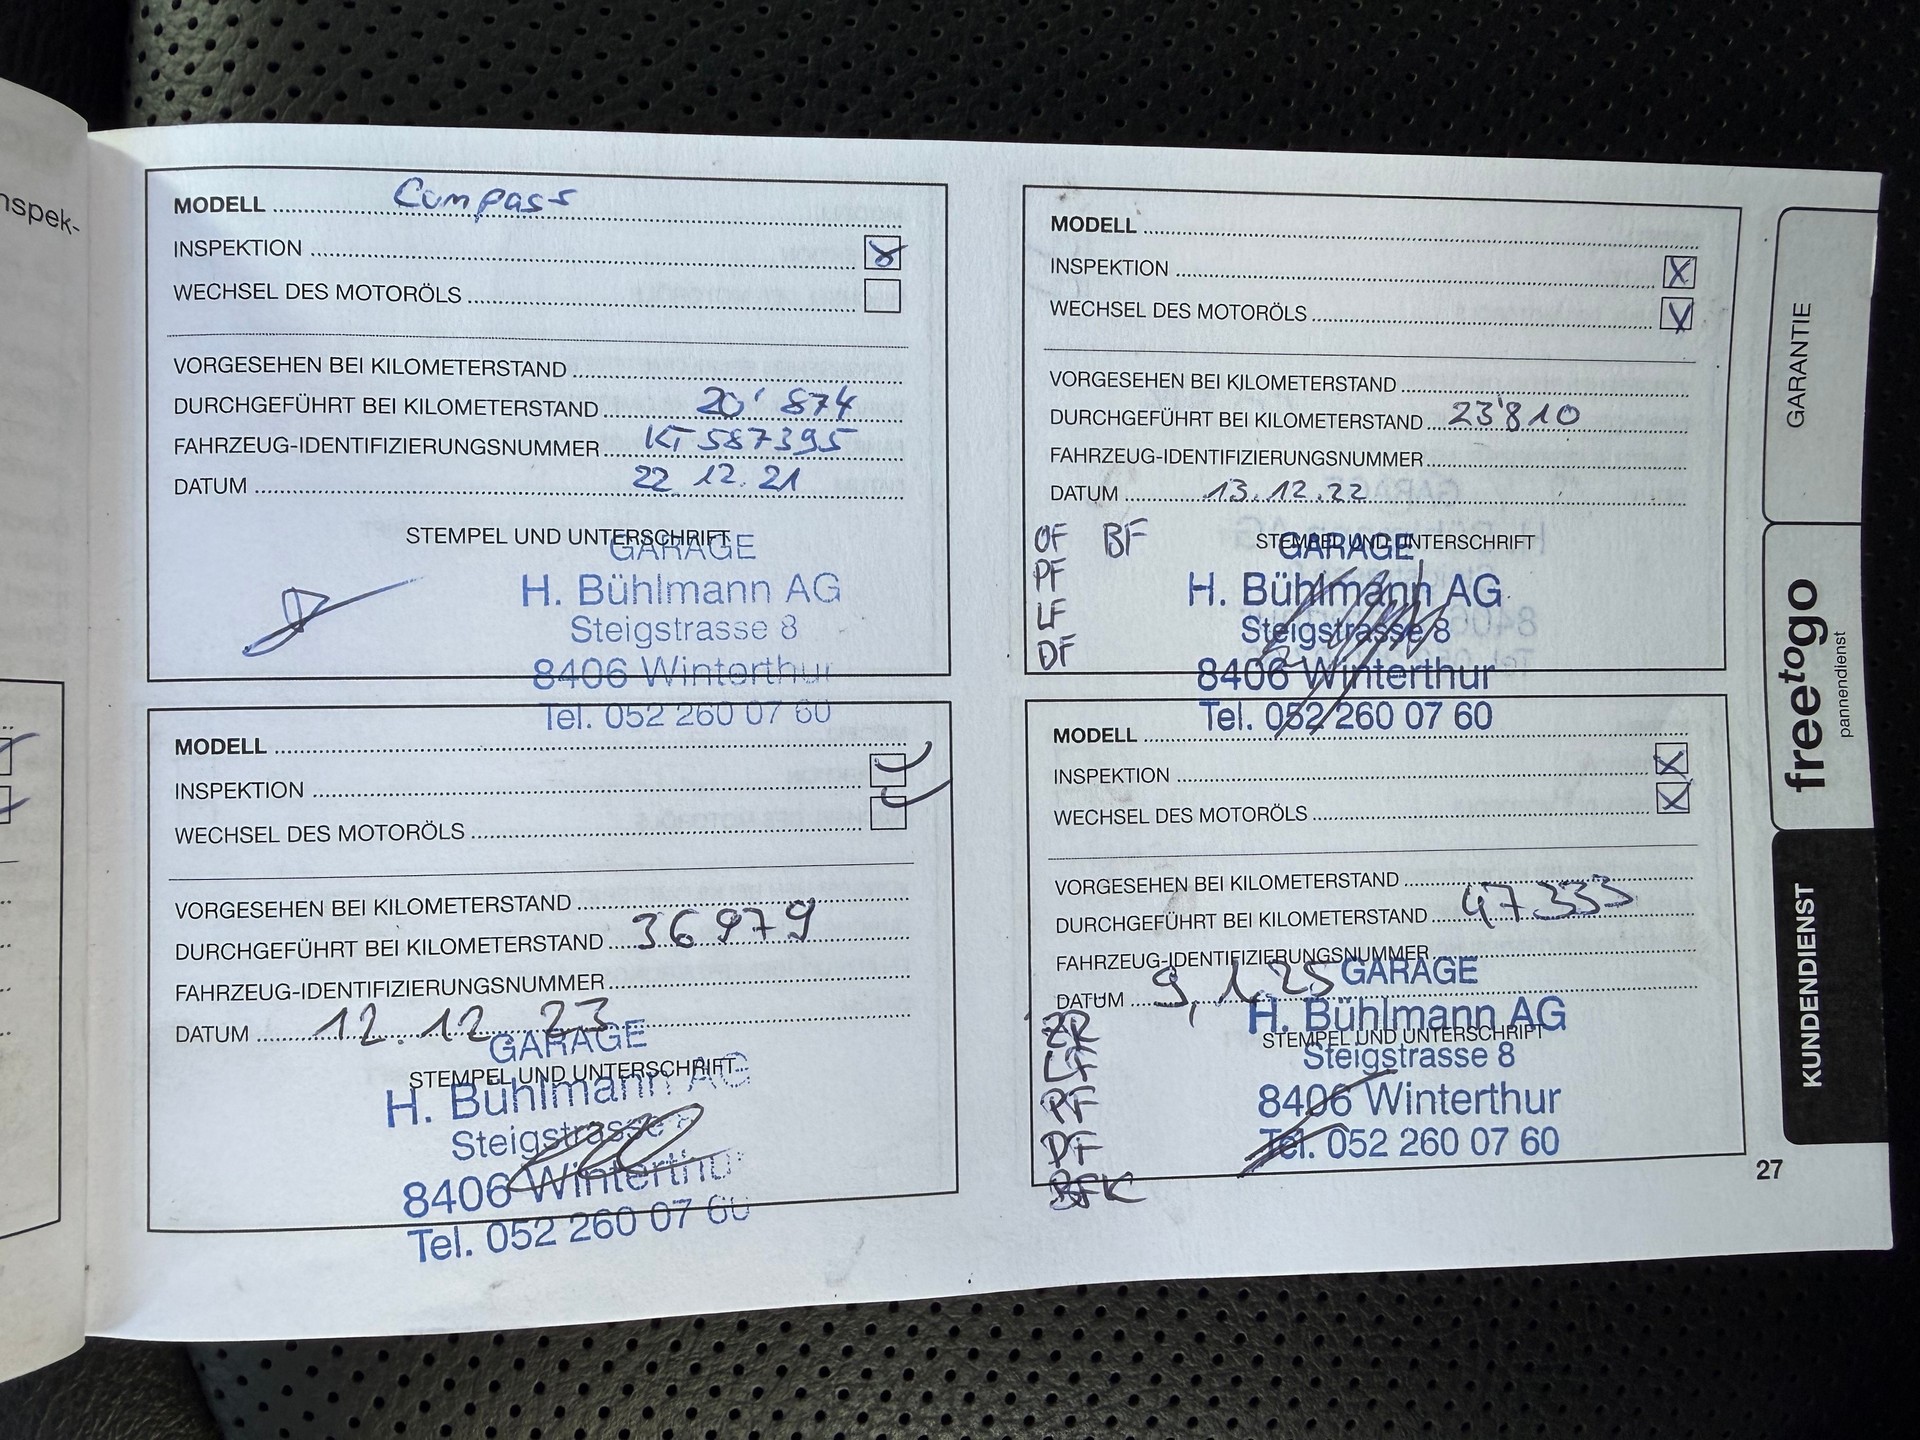 nspek-
MODELL Compass
INSPEKTION
WECHSEL DES MOTORÖLS
VORGESEHEN BEI KILOMETERSTAND
DURCHGEFÜHRT BEI KILOMETERSTAND 20'874
FAHRZEUG-IDENTIFIZIERUNGSNUMMER KT587395
DATUM 22.12.21
STEMPEL UND UNTERSCHRIFT
GARAGE
H. Bühlmann AG
Steigstrasse 8
8406 Winterthur
Tel. 052 260 07 60
MODELL
INSPEKTION X
WECHSEL DES MOTORÖLS X
VORGESEHEN BEI KILOMETERSTAND
DURCHGEFÜHRT BEI KILOMETERSTAND 23'810
FAHRZEUG-IDENTIFIZIERUNGSNUMMER
DATUM 13.12.22
OF BF
PF
LF
DF
STEMPEL UND UNTERSCHRIFT
GARAGE
H. Bühlmann AG
Steigstrasse 8
8406 Winterthur
Tel. 052 260 07 60
MODELL
INSPEKTION
WECHSEL DES MOTORÖLS
VORGESEHEN BEI KILOMETERSTAND
DURCHGEFÜHRT BEI KILOMETERSTAND 36979
FAHRZEUG-IDENTIFIZIERUNGSNUMMER
DATUM 12.12.23
STEMPEL UND UNTERSCHRIFT
GARAGE
H. Bühlmann AG
Steigstrasse 8
8406 Winterthur
Tel. 052 260 07 60
MODELL
INSPEKTION X
WECHSEL DES MOTORÖLS X
VORGESEHEN BEI KILOMETERSTAND
DURCHGEFÜHRT BEI KILOMETERSTAND 47333
FAHRZEUG-IDENTIFIZIERUNGSNUMMER
DATUM 9.1.25
ZR
LF
PF
DF
BFK
STEMPEL UND UNTERSCHRIFT
GARAGE
H. Bühlmann AG
Steigstrasse 8
8406 Winterthur
Tel. 052 260 07 60
GARANTIE
freetogo
pannendienst
KUNDENDIENST
27